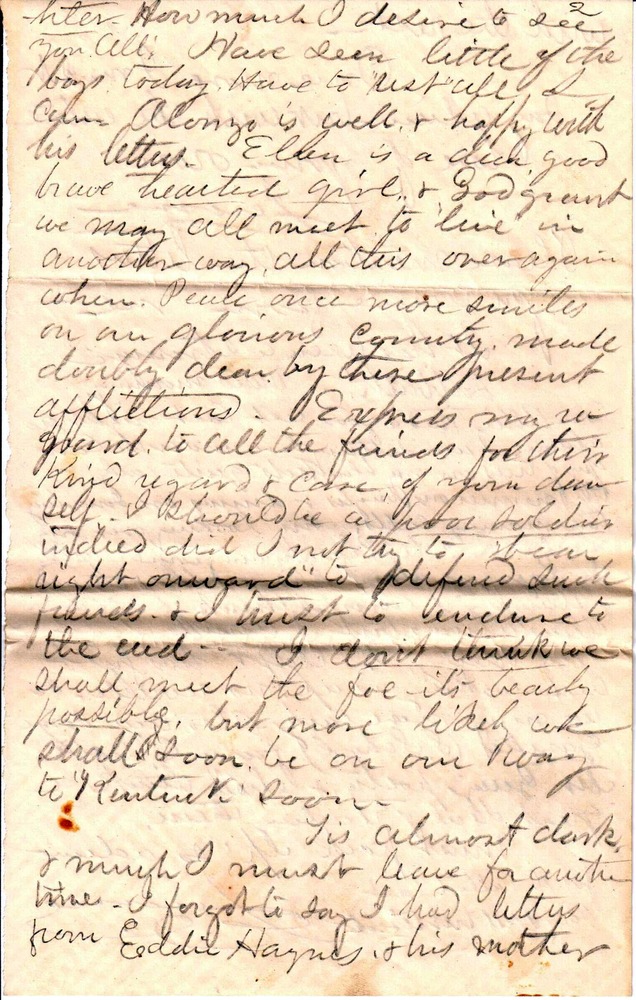 How much I desire to see
you all. Have seen little of the
boys today. Have to "rest" all I
can. Alonzo is well, & happy with
his letters. Ellen is a dear good
brave hearted girl, & God grant
we may all meet to "live" in
another way, all this over again
when Peace once more smiles
on our glorious Country, made
doubly dear by these present
afflictions. Express my re
gard to all the friends for their
kind regard & care of your dear
self. I should be a poor soldier
indeed did I not try to "bear
right onward" to defend such
friends. & I trust to endure to
the end - I don't think we
shall meet the foe - its bearly
possible, but more likely we
shall soon be on our way
to "Kentuck" soon -
Tis almost dark,
& much I must leave for another
time - I forgot to say I had letters
from Eddie Haynes, & his mother